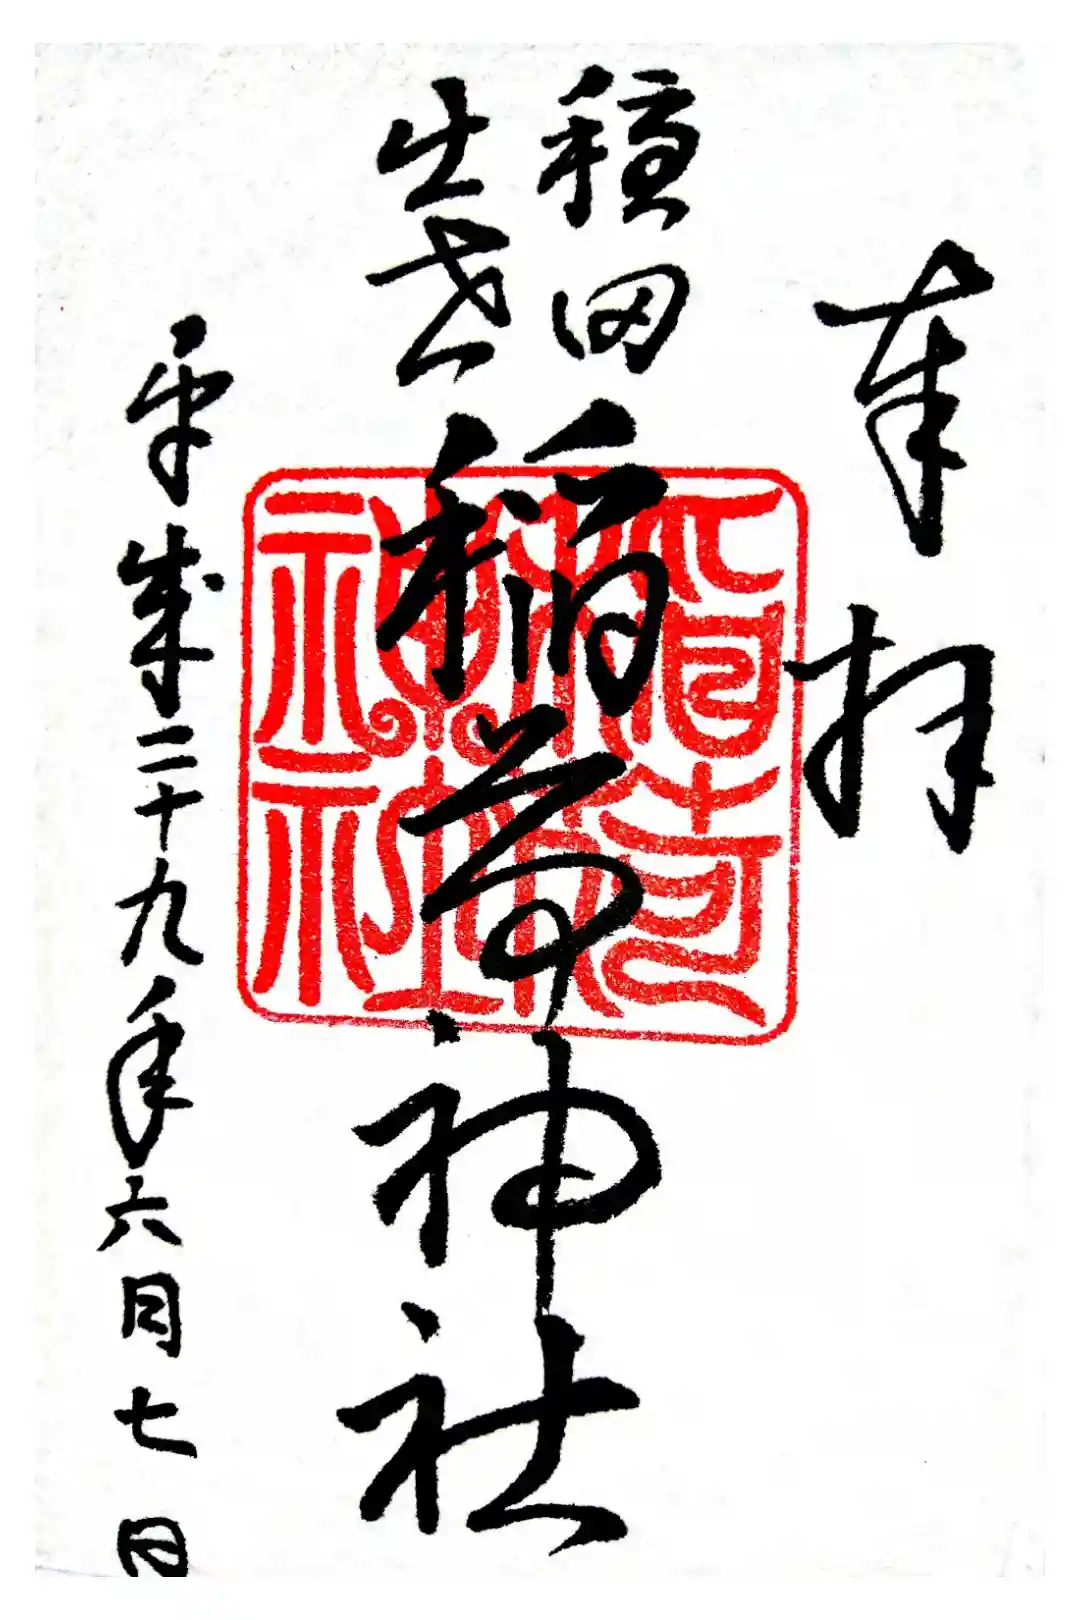 奉拝
出世
稲荷神社
稲荷
神社
平成二十九年六月七日